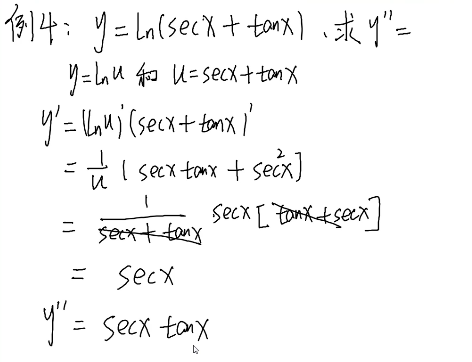 例4: y=ln(secx+tanx),求y''=
y=lnu 和 u=secx+tanx
y'=(lnu)'(secx+tanx)'
=1/u(secxtanx+sec²x]
=1/(secx+tanx) secx[tanx+secx]
= secx
y''= secx tanx